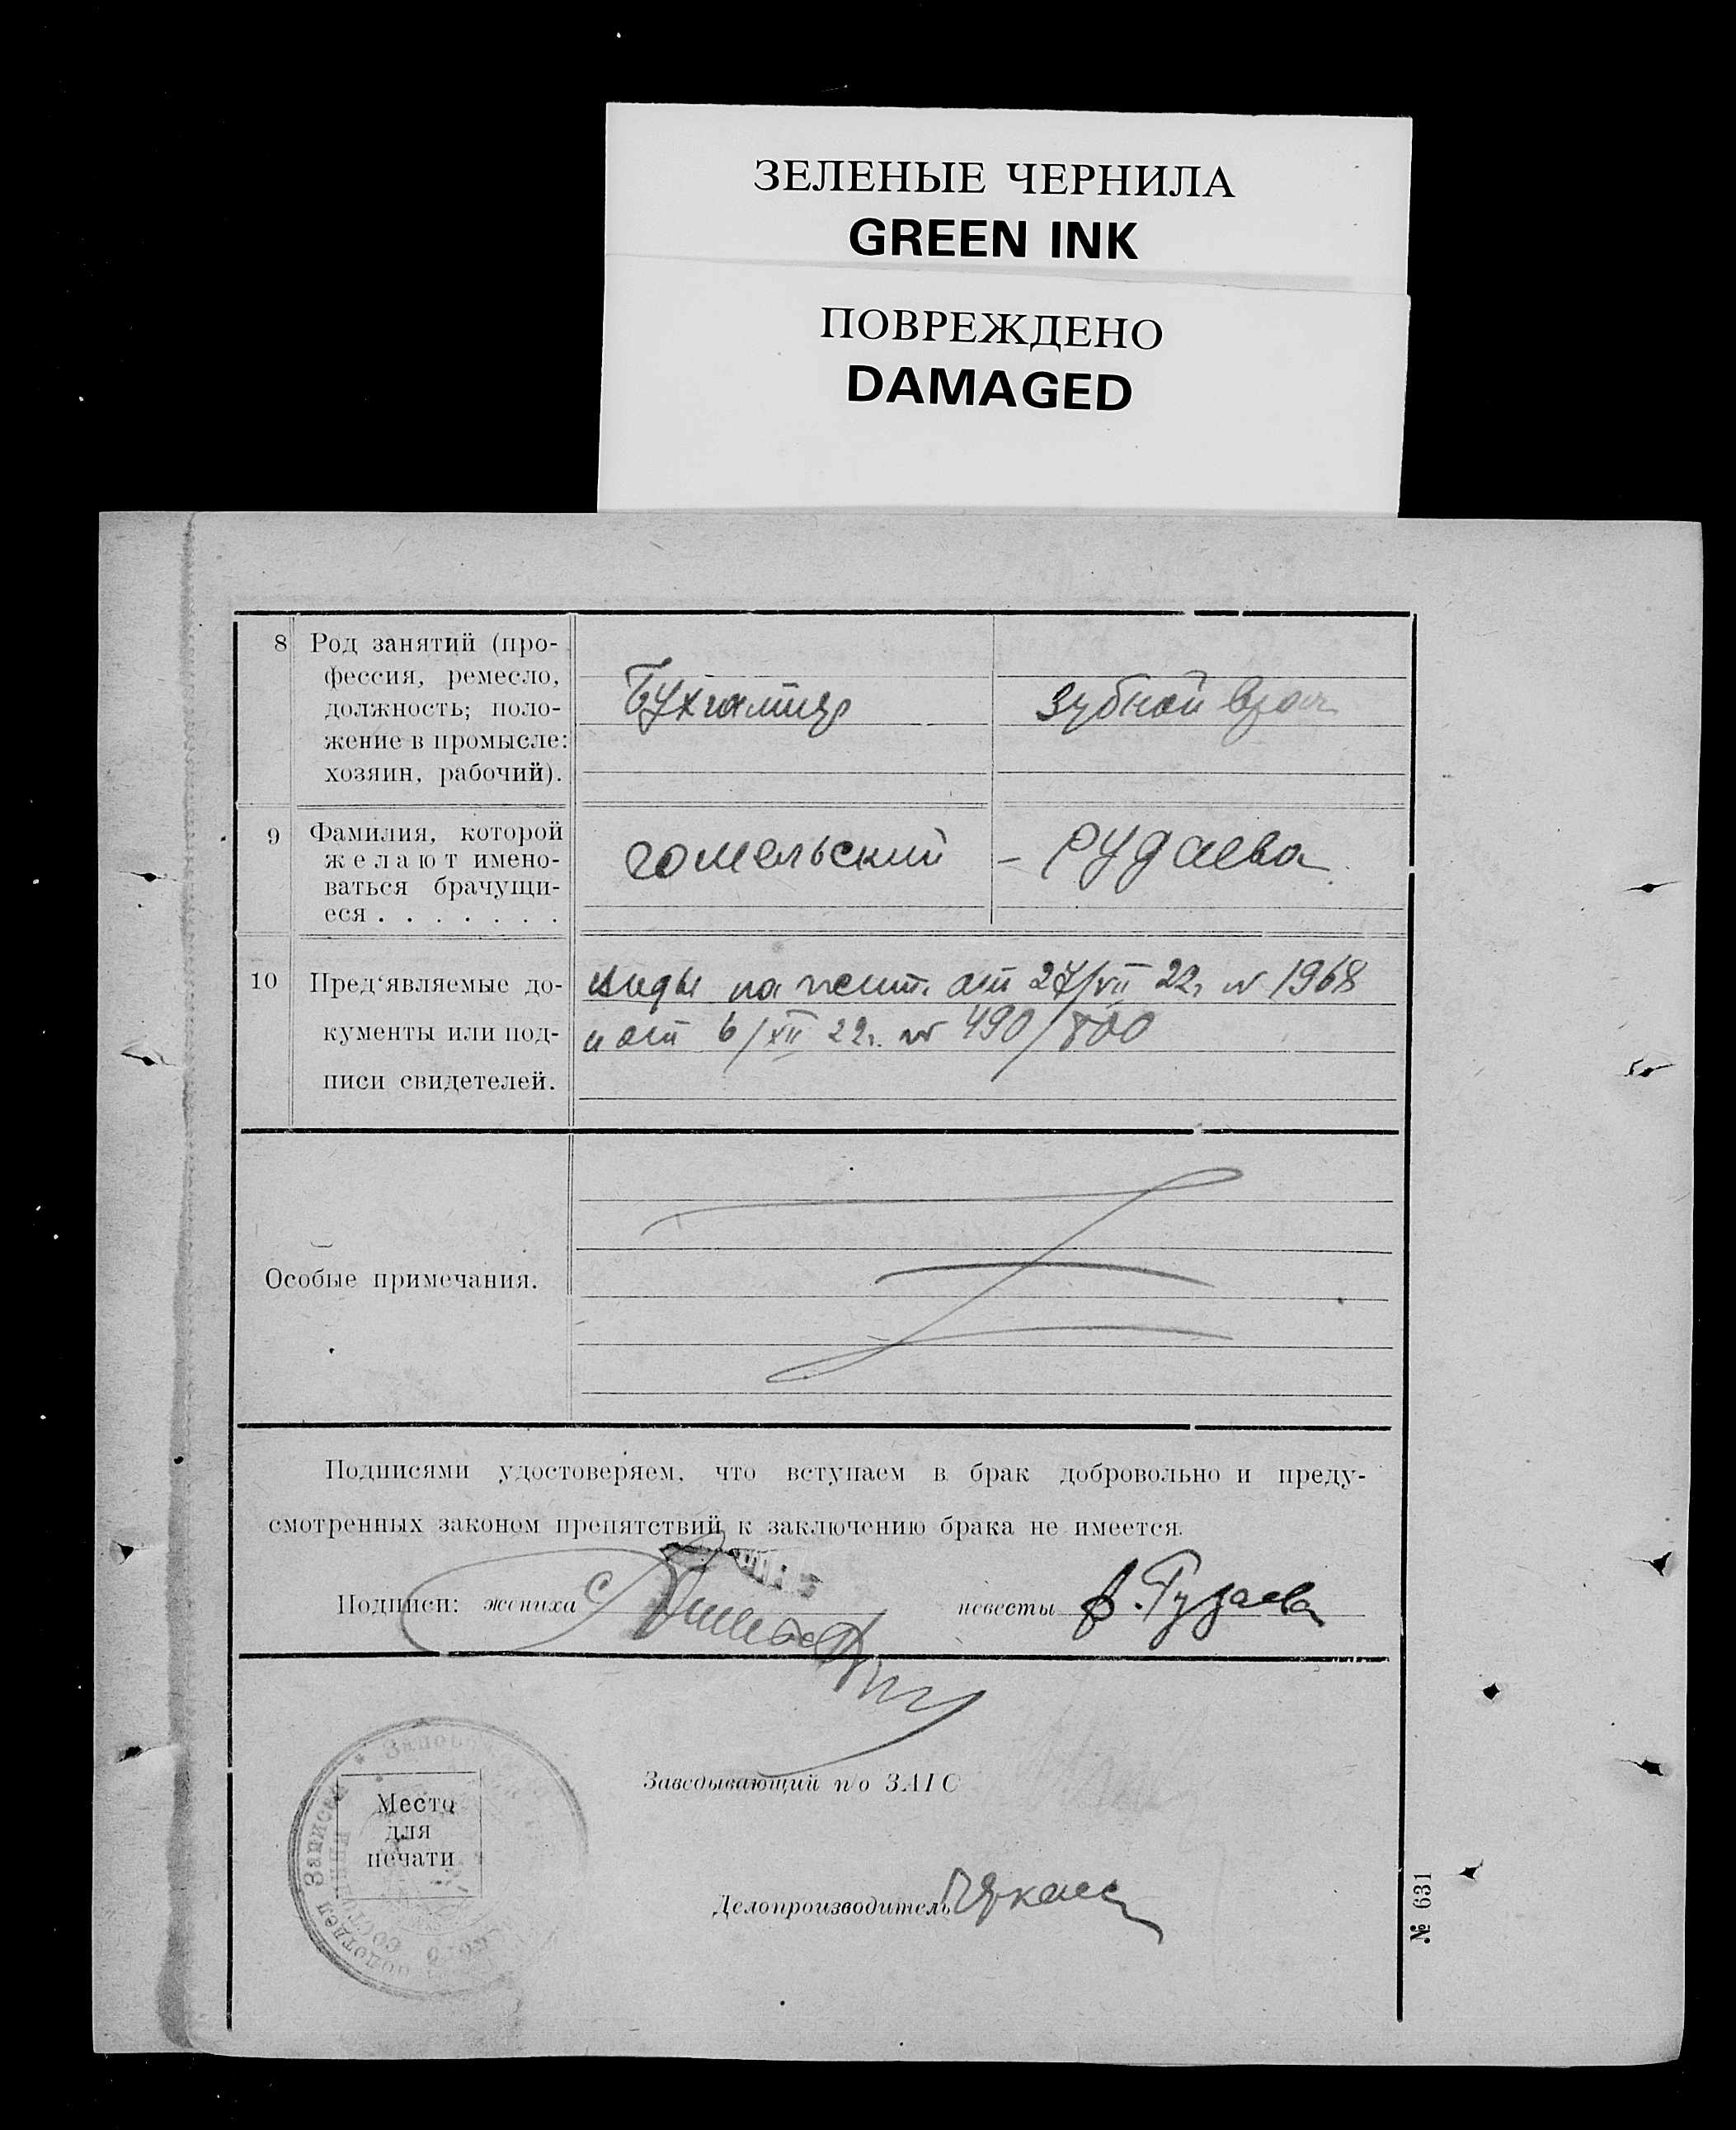 ЗЕЛЕНЫЕ ЧЕРНИЛА
GREEN INK
ПОВРЕЖДЕНО
DAMAGED
8 Род занятий (про-
фессия, ремесло,
должность; поло-
жение в промысле:
хозяин, рабочий).
Бухгалтер
Зубной врач
9 Фамилия, которой
желают имено-
ваться брачущи-
еся . . . . . . .
Гомельский – Рудаева
10 Пред‘являемые до-
кументы или под-
писи свидетелей.
виды на жит. от 27/VII 22г. № 1968
и от 6/XII 22г. № 490/800
Особые примечания.
Подписями удостоверяем, что вступаем в брак добровольно и преду-
смотренных законом препятствий к заключению брака не имеется.
Подписи: жениха
невесты Рудаева
Заведывающий п/о ЗАГС
Место
для
печати
Подотдел Записи
Делопроизводитель
№ 631